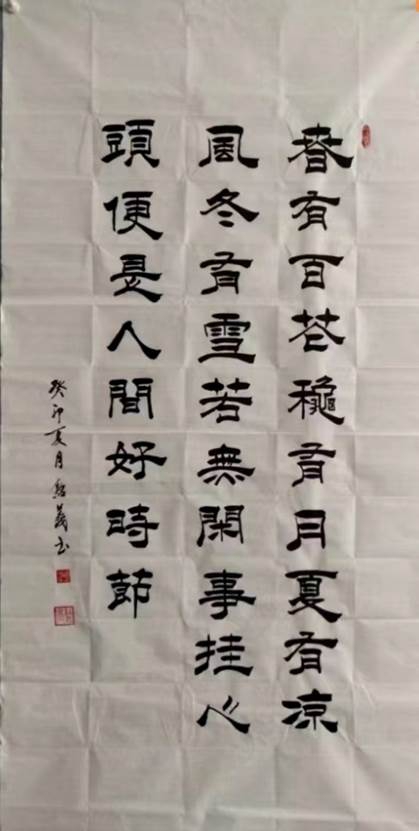 春有百花穐有月夏有涼
風冬有雪若無閑事挂心
頭便是人間好時節
癸卯夏月義书